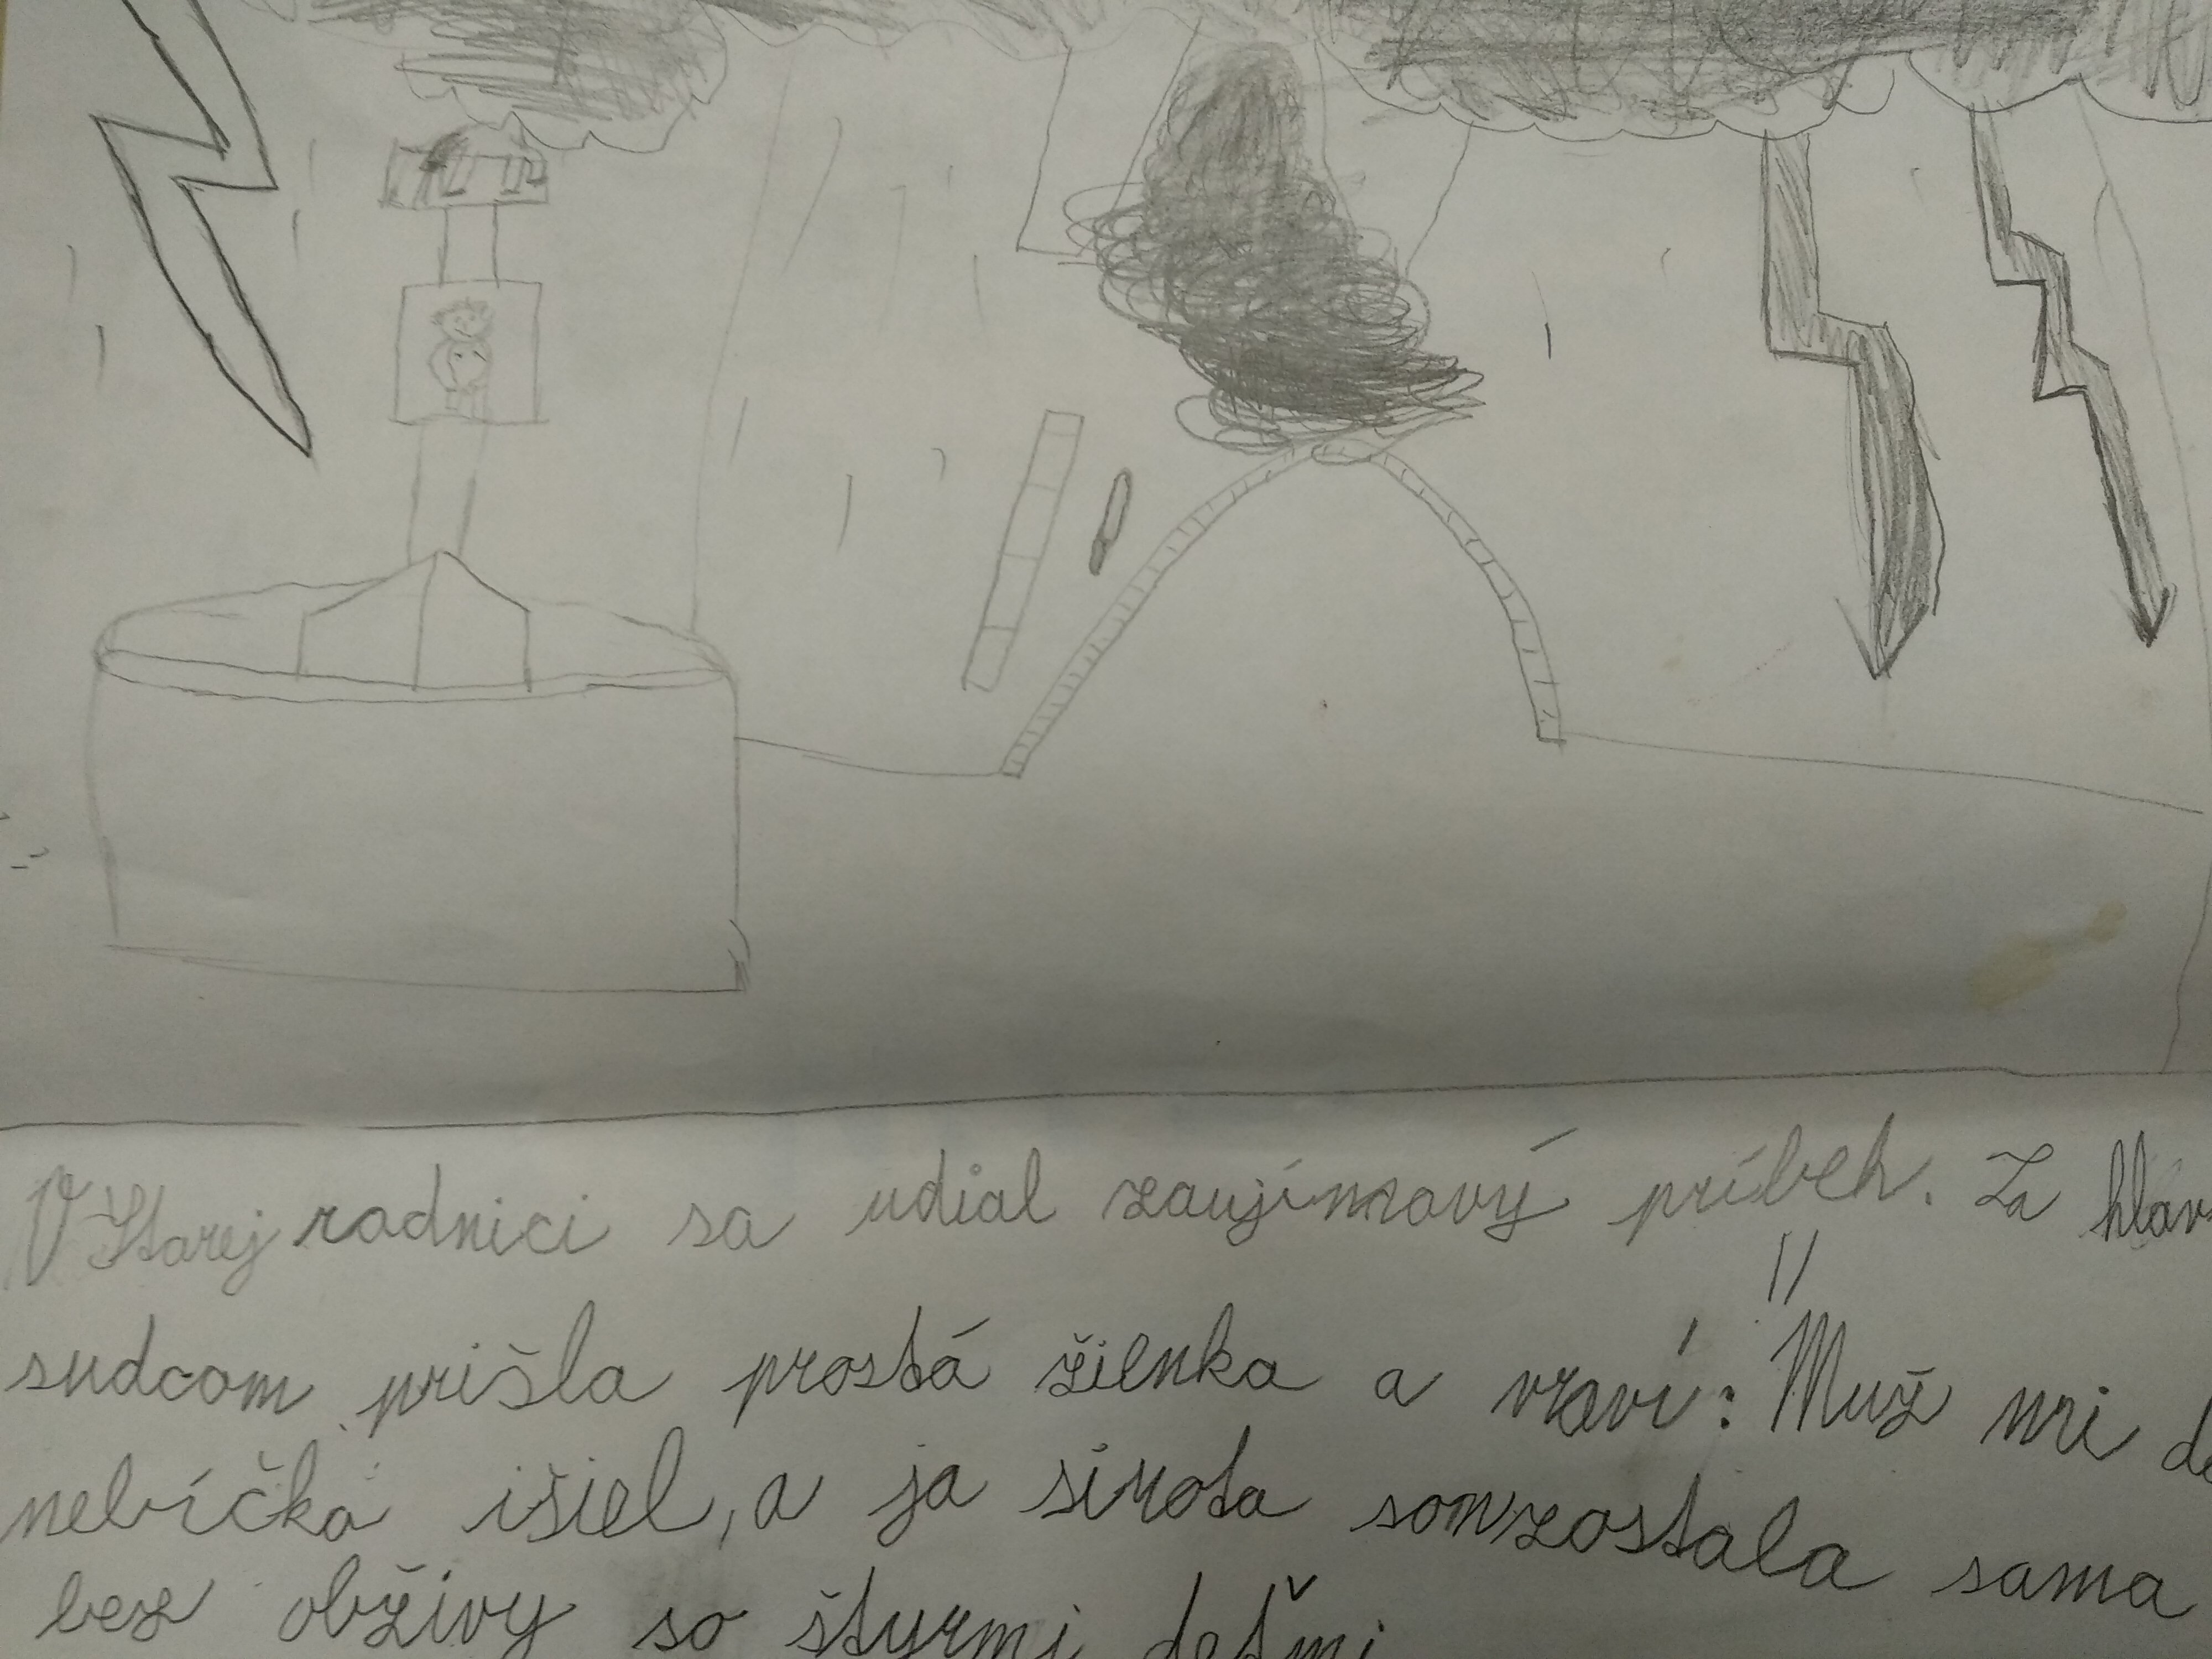 V Starej radnici sa udial zaujímavý príbeh. Za hlav
sudcom prišla prostá žienka a vraví: "Muž mi do
nebíčka išiel, a ja sirota som zostala sama
bez obživy so štyrmi deťmi